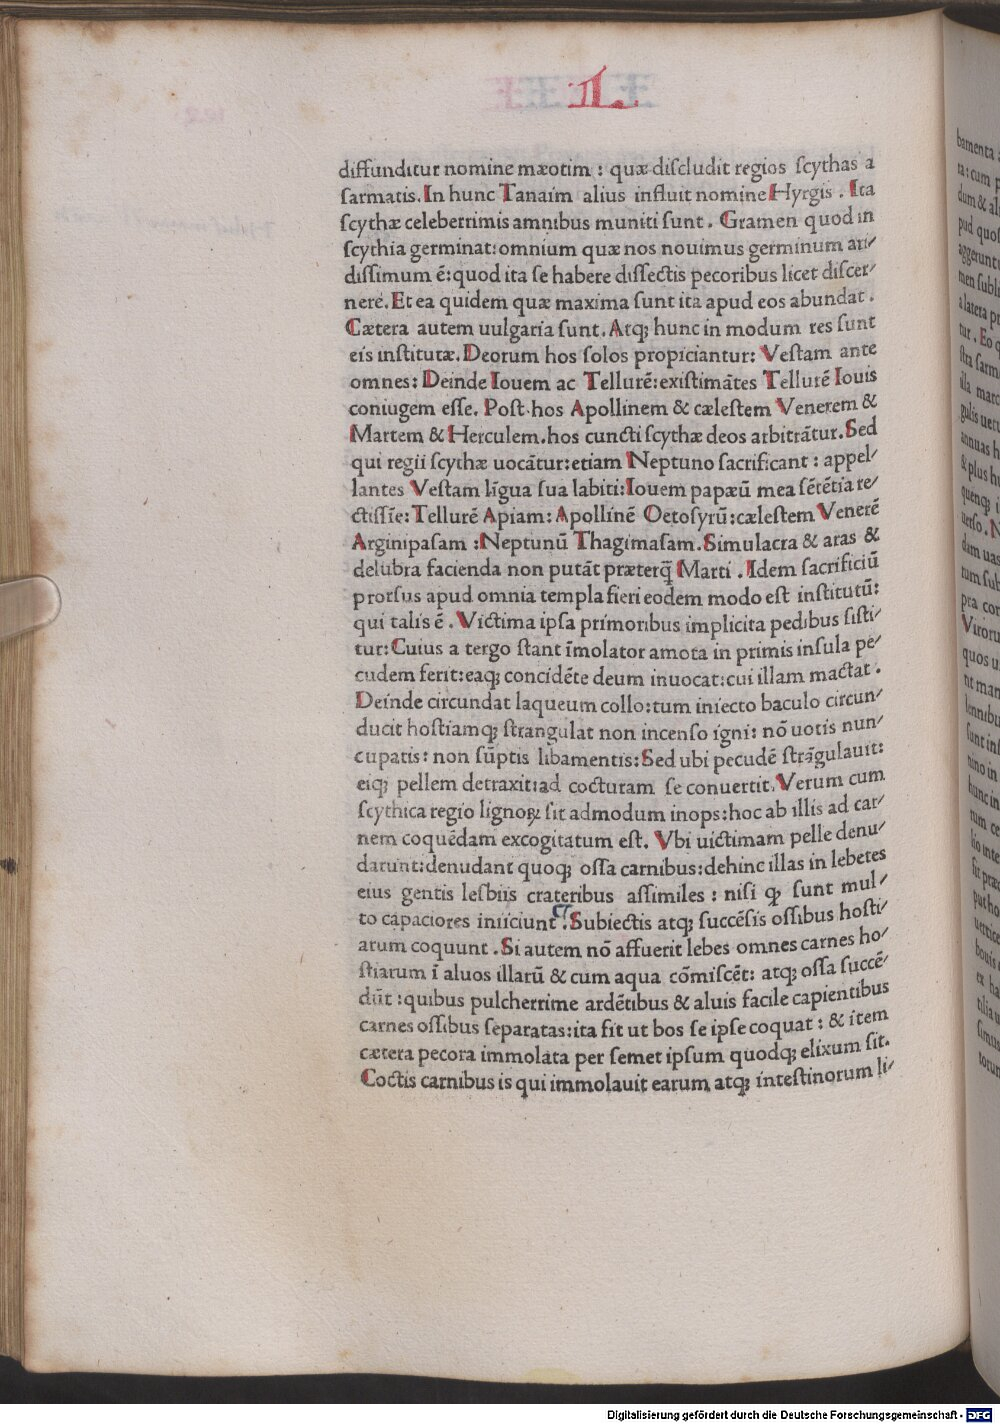 L.
diffunditur nomine mæotim : quæ discludit regios scythas a
sarmatis. In hunc Tanaim alius influit nomine Hyrgis . Ita
scythæ celeberrimis amnibus muniti sunt . Gramen quod in
scythia germinat: omnium quæ nos nouimus germinum ar/
dissimum ē: quod ita se habere dissectis pecoribus licet discer/
nere. Et ea quidem quæ maxima sunt ita apud eos abundat .
Cætera autem uulgaria sunt. Atq; hunc in modum res sunt
eis institutæ. Deorum hos solos propiciantur: Vestam ante
omnes: Deinde Iouem ac Tellurē: existimātes Tellurē Iouis
coniugem esse. Post hos Apollinem & cælestem Venerem &
Martem & Herculem. hos cuncti scythæ deos arbitrātur. Sed
qui regii scythæ uocātur: etiam Neptuno sacrificant : appel/
lantes Vestam līgua sua labiti: Iouem papæū mea sētētia re/
ctissīe: Tellurē Apiam: Apollinē Oetosyrū: cælestem Venerē
Arginipasam : Neptunū Thagimasam. Simulacra & aras &
delubra facienda non putāt præterq̄ Marti . Idem sacrificiū
prorsus apud omnia templa fieri eodem modo est institutū:
qui talis ē . Victima ipsa primoribus implicita pedibus sisti/
tur: Cuius a tergo stant īmolator amota in primis insula pe/
cudem ferit: eaq; concidēte deum inuocat: cui illam mactat .
Deinde circundat laqueum collo: tum iniecto baculo circun/
ducit hostiamq; strangulat non incenso igni: nō uotis nun/
cupatis: non sūptis libamentis: Sed ubi pecudē strāgulauit:
eiq; pellem detraxit: ad cocturam se conuertit. Verum cum
scythica regio lignoꝝ sit admodum inops: hoc ab illis ad car/
nem coquēdam excogitatum est. Vbi uictimam pelle denu/
darunt: denudant quoq; ossa carnibus: dehinc illas in lebetes
eius gentis lesbiis crateribus assimiles : nisi ꝙ sunt mul/
to capaciores iniiciunt . Subiectis atq; succēsis ossibus hosti/
arum coquunt . Si autem nō affuerit lebes omnes carnes ho/
stiarum ī aluos illarū & cum aqua cōmiscēt: atq; ossa succē/
dūt : quibus pulcherrime ardētibus & aluis facile capientibus
carnes ossibus separatas: ita fit ut bos se ipse coquat : & item
cætera pecora immolata per semet ipsum quodq; elixum sit.
Coctis carnibus is qui immolauit earum atq; intestinorum li/
Digitalisierung gefördert durch die Deutsche Forschungsgemeinschaft - DFG